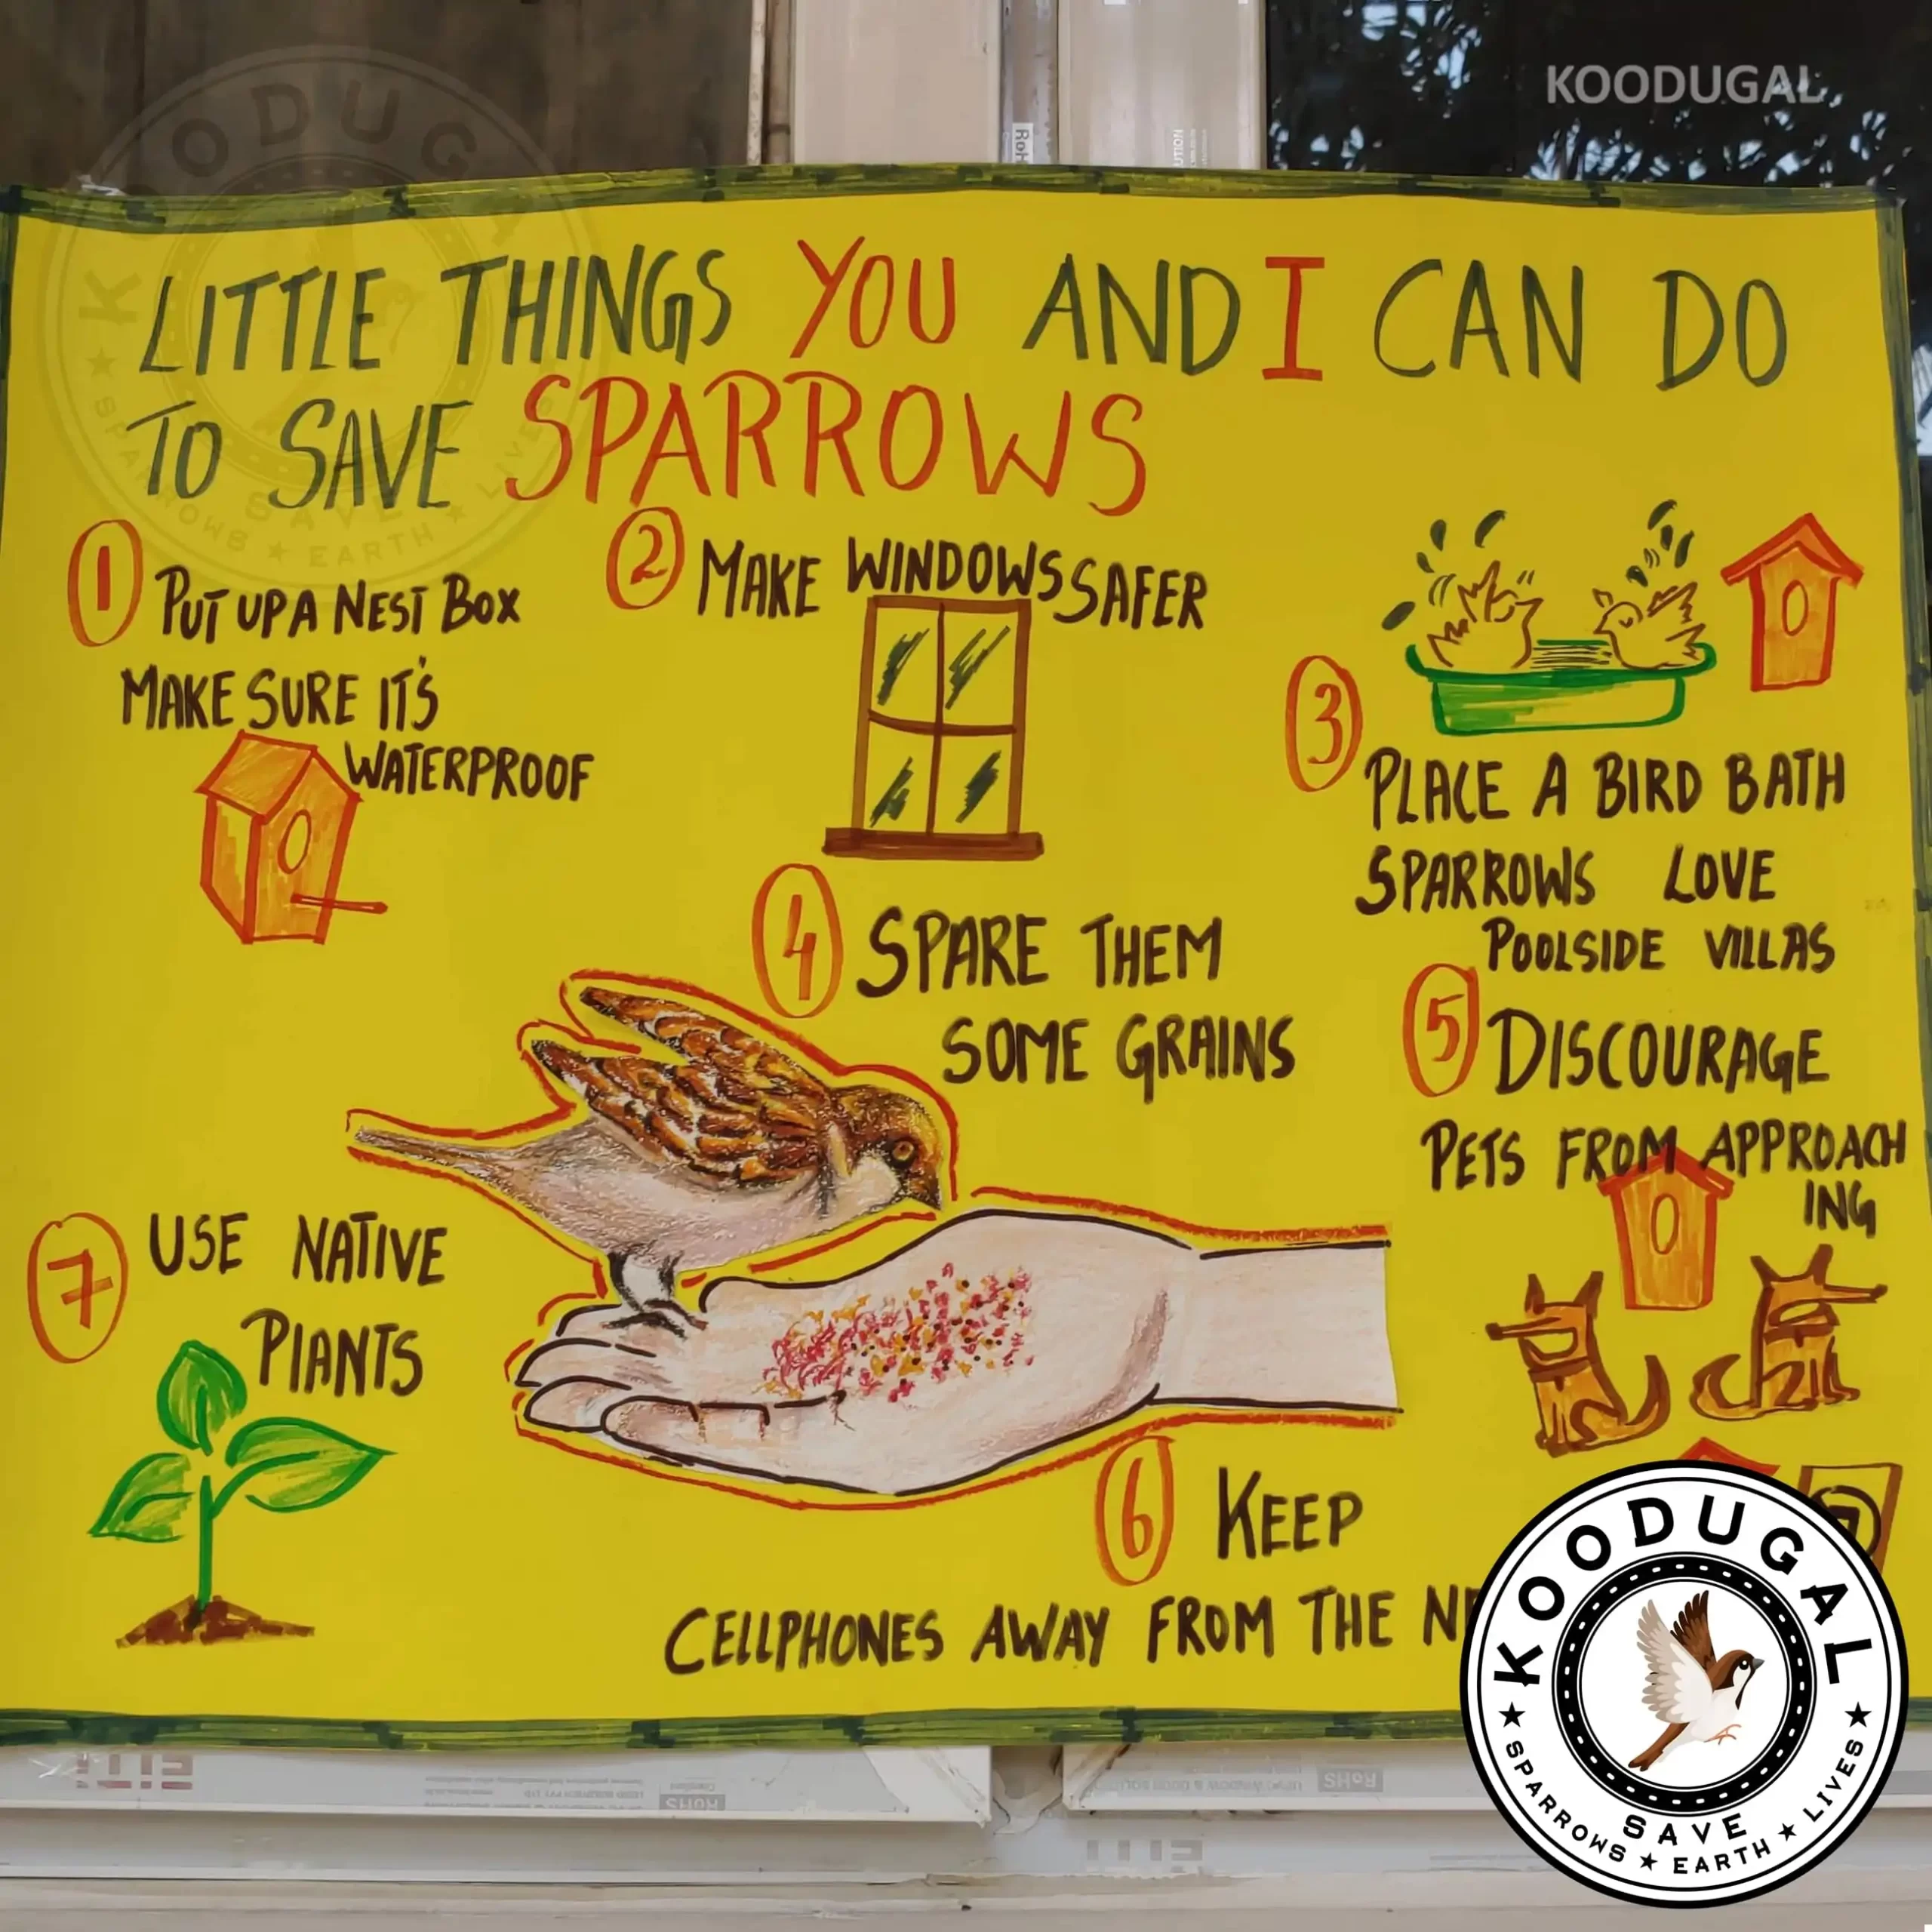 KOODUGAL
LITTLE THINGS YOU AND I CAN DO
TO SAVE SPARROWS
1 PUT UP A NEST BOX
MAKE SURE IT'S
WATERPROOF
2 MAKE WINDOWS SAFER
3 PLACE A BIRD BATH
SPARROWS LOVE
POOLSIDE VILLAS
4 SPARE THEM
SOME GRAINS
5 DISCOURAGE
PETS FROM APPROACH
ING
6 KEEP
CELLPHONES AWAY FROM THE
7 USE NATIVE
PLANTS
KOODUGAL
SAVE
SPARROWS ★ EARTH ★ LIVES
KOODUGAL
SAVE
SPARROWS ★ EARTH ★ LIVES
RoHS
RoHS